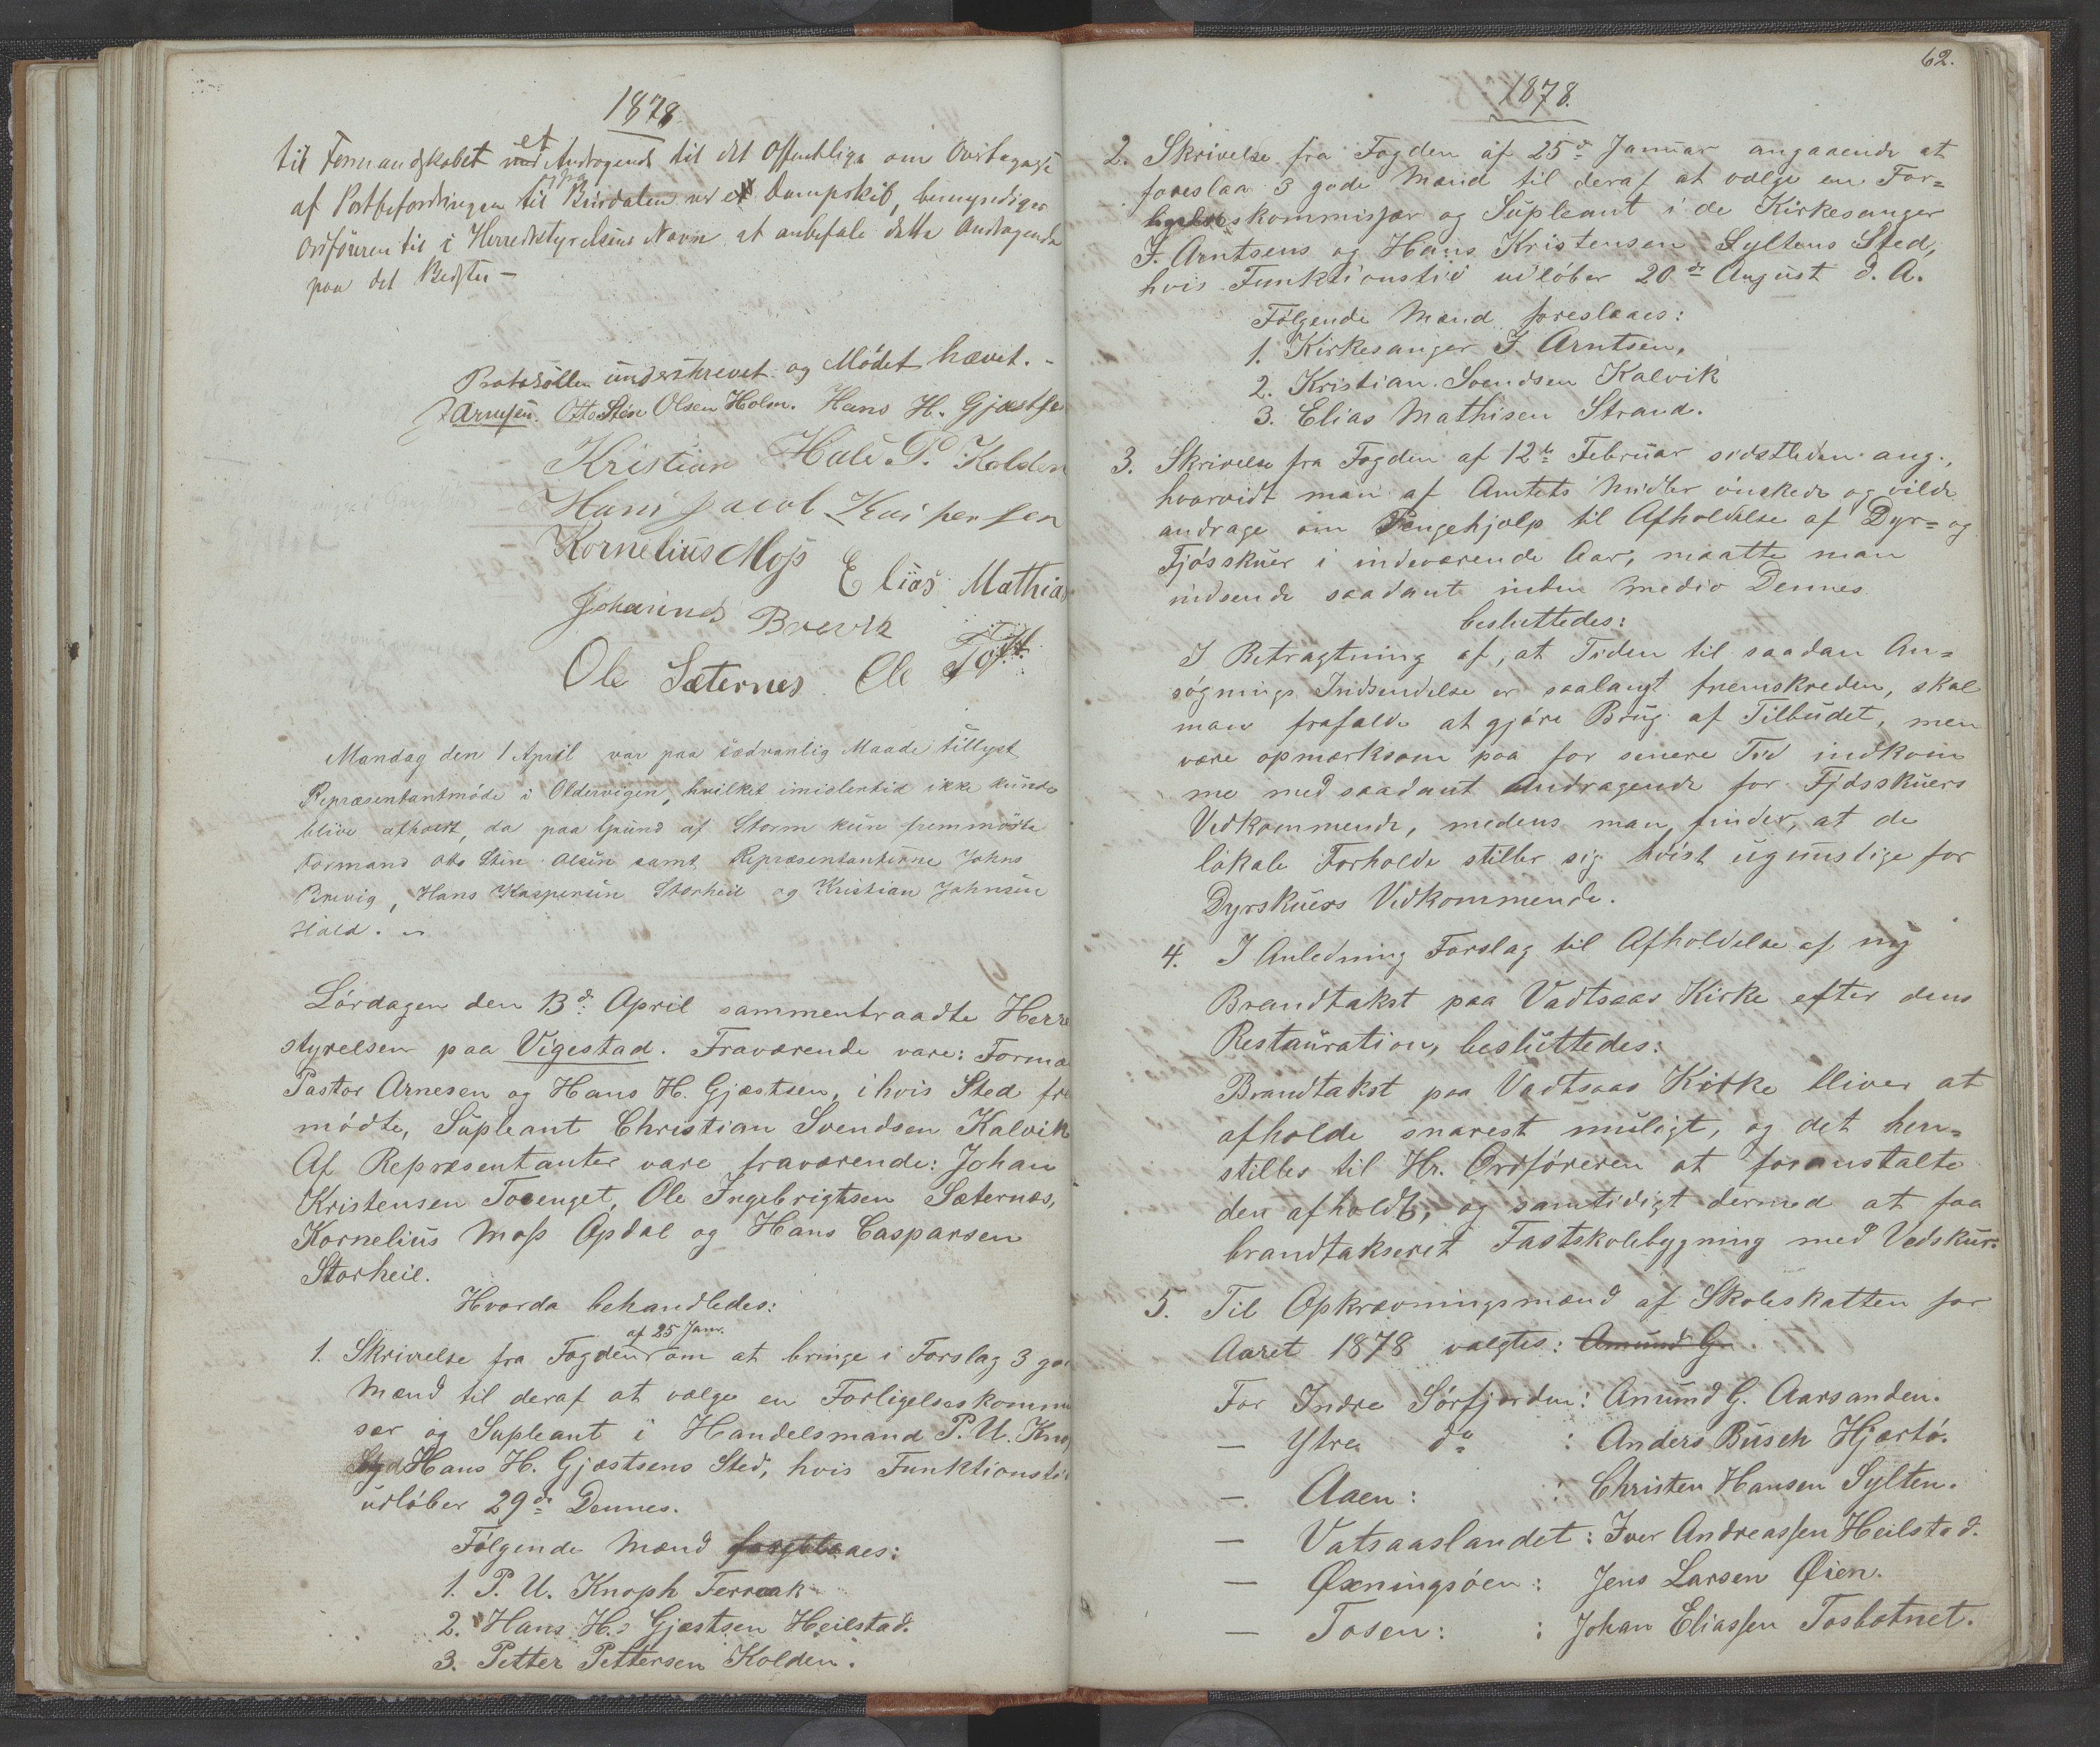 1878
til Formandskabet et Andragende til det Offentlige om Overtagelse
af Postbefordringen til Bindalen ved et Dampskib, bemyndiges
Ordføreren til i Herredstyrelsens Navn at anbefale dette Andragende
paa det Bedste –
Protokollen underskrevet og Mødet hævet. –
J Arnesen. Otto Stén Olsen Holm. Hans H. Gjæstse
Kristian Hald P. Kolden
Hans Jacob Kaspersen
Kornelius Moss Elias Mathias
Johannes Brevik
Ole Sæternes Ole Toft
Mandag den 1 April var paa sædvanlig Maade tillyst
Repræsentantmøde i Oldervigen, hvilket imidlertid ikke kunde
blive afholdt, da paa Grund af Storm kun fremmødte
Formand Otto Stén Olsen samt Repræsentanterne Johns
Brevig, Hans Kaspersen Storheil og Kristian Johnsen
Hald.
Lørdagen den 13d April sammentraadte Herre
styrelsen paa Vigestad. Fraværende vare: Forma
Pastor Arnesen og Hans H. Gjæstsen, i hvis Sted fre
mødte, Supleant Christian Svendsen Kalvik
Af Repræsentanter vare fraværende: Johan
Kristensen Tosenget, Ole Ingebrigtsen Sæternæs,
Kornelius Moss Opdal og Hans Casparsen
Storheil.
Hvorda behandledes:
af 25 Janr.
1. Skrivelse fra Fogden om at bringe i Forslag 3 go
Mænd til deraf at vælge en Forligelseskommi
sær og Supleant i Handelsmand P. U. Kno
Hans H. Gjæstsens Sted, hvis Funktionsti
udløber 29de Dennes.
Følgende Mænd foreslaaes:
1. P. U. Knoph Terraak
2. Hans H. Gjæstsen Heilstad.
3. Petter Pettersen Kolden.
62.
1878.
2. Skrivelse fra Fogden af 25de Januar angaaende at
foreslaa 3 gode Mænd til deraf at vælge en For=
ligelseskommissær og Supleant i de Kirkesanger
J. Arntsens og Hans Kristensen Syltens Sted,
hvis Funktionstid udløber 20de August d. A.
Følgende Mænd foreslaaes:
1. Kirkesanger J. Arntsen,
2. Kristian Svendsen Kalvik
3. Elias Mathisen Strand.
3. Skrivelse fra Fogden af 12te Februar sidstleden ang.,
hvorvidt man af Amtets Midler ønskede og vilde
andrage om Pengehjælp til Afholdelse af Dyr= og
Fjøsskuer i indeværende Aar, maatte man
indsende saadant inden medio Dennes
besluttedes:
I Betragtning af, at Tiden til saadan An=
søgnings Indsendelse er saalangt fremskreden, skal
man frafalde at gjøre Brug af Tilbudet, men
være opmærksom paa for senere Tid indkom
me med saadant Andragende for Fjøsskuers
Vedkommende, medens man finder, at de
lokale Forholde stiller sig høist ugunstige for
Dyrskuers Vedkommende.
4. I Anledning Forslag til Afholdelse af ny
Brandtakst paa Vadtsaas Kirke efter dens
Restauration, besluttedes:
Brandtakst paa Vadtsaas Kirke bliver at
afholde snarest muligt, og det hen=
stilles til Hr. Ordføreren at foranstalte
den afholdt, og samtidigt dermed at faa
brandtakseret Fastskolebygning med Vedskur.
5. Til Opkrævningsmænd af Skoleskatten for
Aaret 1878 valgtes: Amund G.
For Indre Sørfjorden: Amund G. Aarsanden.
— Ytre do : Anders Busch Hjærtø.
— Aaen: : Christen Hansen Sylten.
— Vatsaaslandet: Iver Andreassen Heilstad.
— Øxningsøen: Jens Larsen Øien.
— Tosen: : Johan Eliassen Tosbotnet.